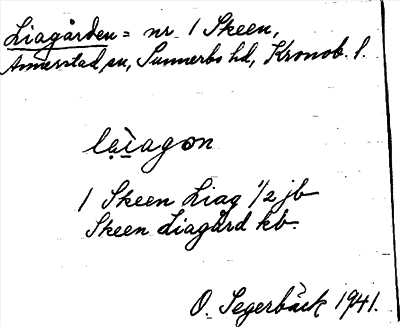 Liagården = nr 1 Skeen,
Annerstad sn, Sunnerbo hd, Kronob. l.
lạìagon
1 Skeen Liag 1/2 jb
Skeen Liagård kb.
O. Segerbäck 1941.